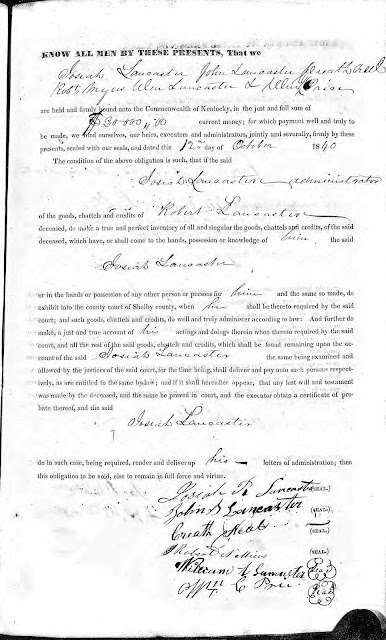 KNOW ALL MEN BY THESE PRESENTS, That we
Josiah Lancaster John Lancaster Creath Neel
Robt Wm Lancaster & Price
are held and firmly bound unto the Commonwealth of Kentucky, in the just and full sum of
$30000,00 current money; for which payment well and truly to
be made, we bind ourselves, our heirs, executors and administrators, jointly and severally, firmly by these
presents, sealed with our seals, and dated this 12th day of October 1840
The condition of the above obligation is such, that if the said
Josiah Lancaster administrator
of the goods, chattels and credits of Robert Lancaster
deceased, do make a true and perfect inventory of all and singular the goods, chattels and credits, of the said
deceased, which have, or shall come to the hands, possession or knowledge of him the said
Josiah Lancaster
or in the hands or possesion of any other person or persons for him and the same so made, do
exhibit into the county court of Shelby county, when he shall be thereto required by the said
court; and such goods, chattels and credits, do well and truly administer according to law: And further do
make, a just and true account of his actings and doings therein when thereto required by the said
court, and all the rest of the said goods, chattels and credits, which shall be found remaining upon the ac-
count of the said Josiah Lancaster the same being examined and
allowed by the justices of the said court, for the time being, shall deliver and pay unto such persons respect-
ively, as are entitled to the same by law; and if it shall hereafter appear, that any last will and testament
was made by the deceased, and the same be proved in court, and the executor obtain a certificate of pro-
bate thereof, and the said
Josiah Lancaster
do in such case, being required, render and deliver up his letters of administration; then
this obligation to be void, else to remain in full force and virtue.
Josiah R Lancaster (SEAL.)
John Lancaster (SEAL.)
Creath Neel (SEAL.)
Robert (SEAL.)
William Lancaster Seal
C Price Seal